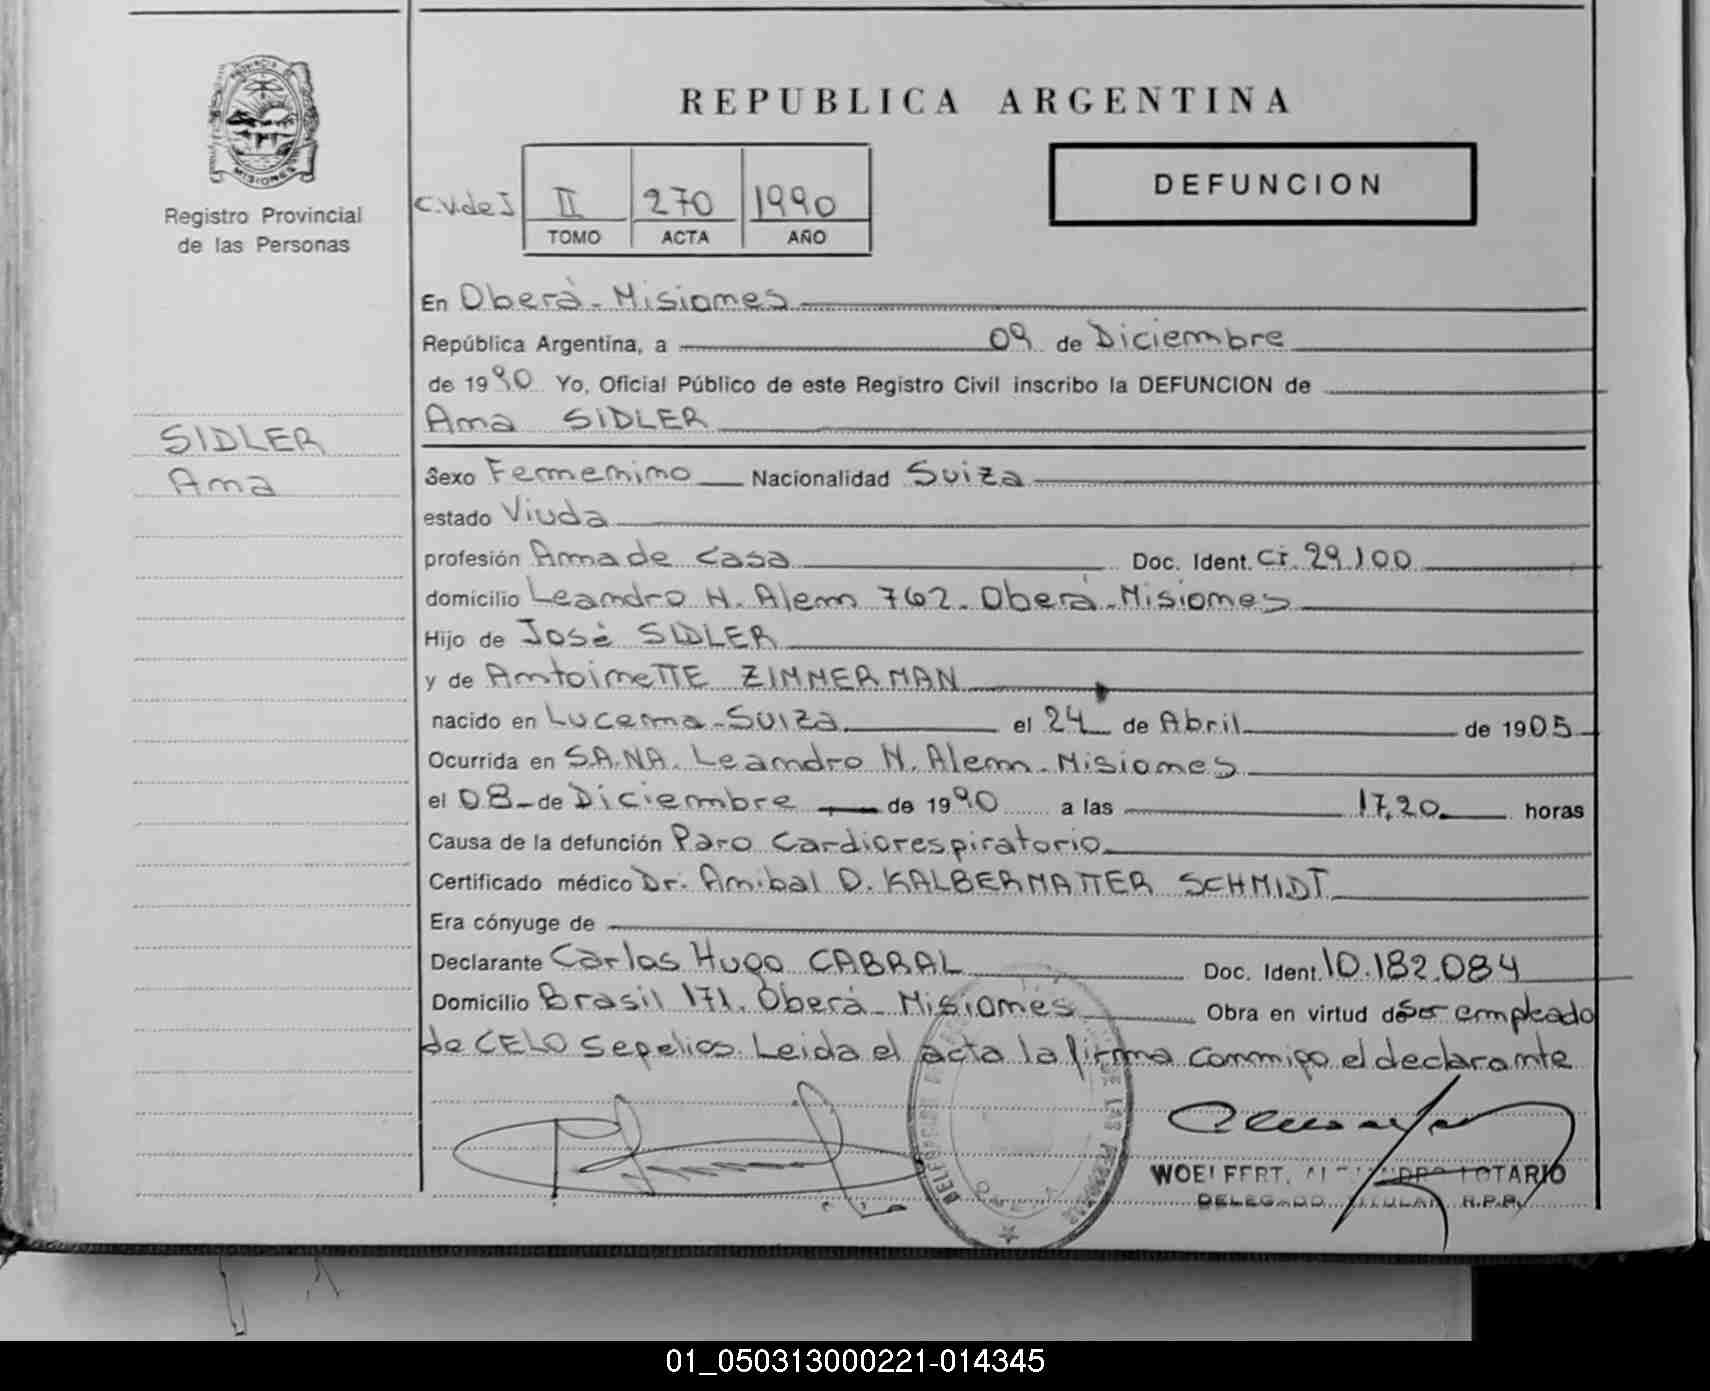 PROVINCIA DE
MISIONES
Registro Provincial
de las Personas
REPUBLICA ARGENTINA
C.V.de I II 270 1990
TOMO ACTA AÑO
DEFUNCION
En Oberá - Misiones
República Argentina, a 09 de Diciembre
de 1990 Yo, Oficial Público de este Registro Civil inscribo la DEFUNCION de
Ana SIDLER
SIDLER
Ana
Sexo Femenino Nacionalidad Suiza
estado Viuda
profesión Ama de casa Doc. Ident. Ci. 29.100
domicilio Leandro N. Alem 762. Oberá - Misiones
Hijo de José SIDLER
y de AntoineTTE ZIMMERMAN
nacido en Lucerna - Suiza el 24 de Abril de 1905
Ocurrida en S.A.NA. Leandro N. Alem - Misiones
el 08 - de Diciembre de 1990 a las 17,20 horas
Causa de la defunción Paro Cardiorespiratorio
Certificado médico Dr. Anibal D. KALBERMATTER SCHMIDT
Era cónyuge de
Declarante Carlos Hugo CABRAL Doc. Ident. 10.182.084
Domicilio Brasil 171. Oberá - Misiones Obra en virtud de ser empleado
de CELO Sepelios. Leida el acta la firma conmigo el declarante
WOELFFERT, LOTARIO
DELEGADO TITULAR R.P.P.
01_050313000221-014345